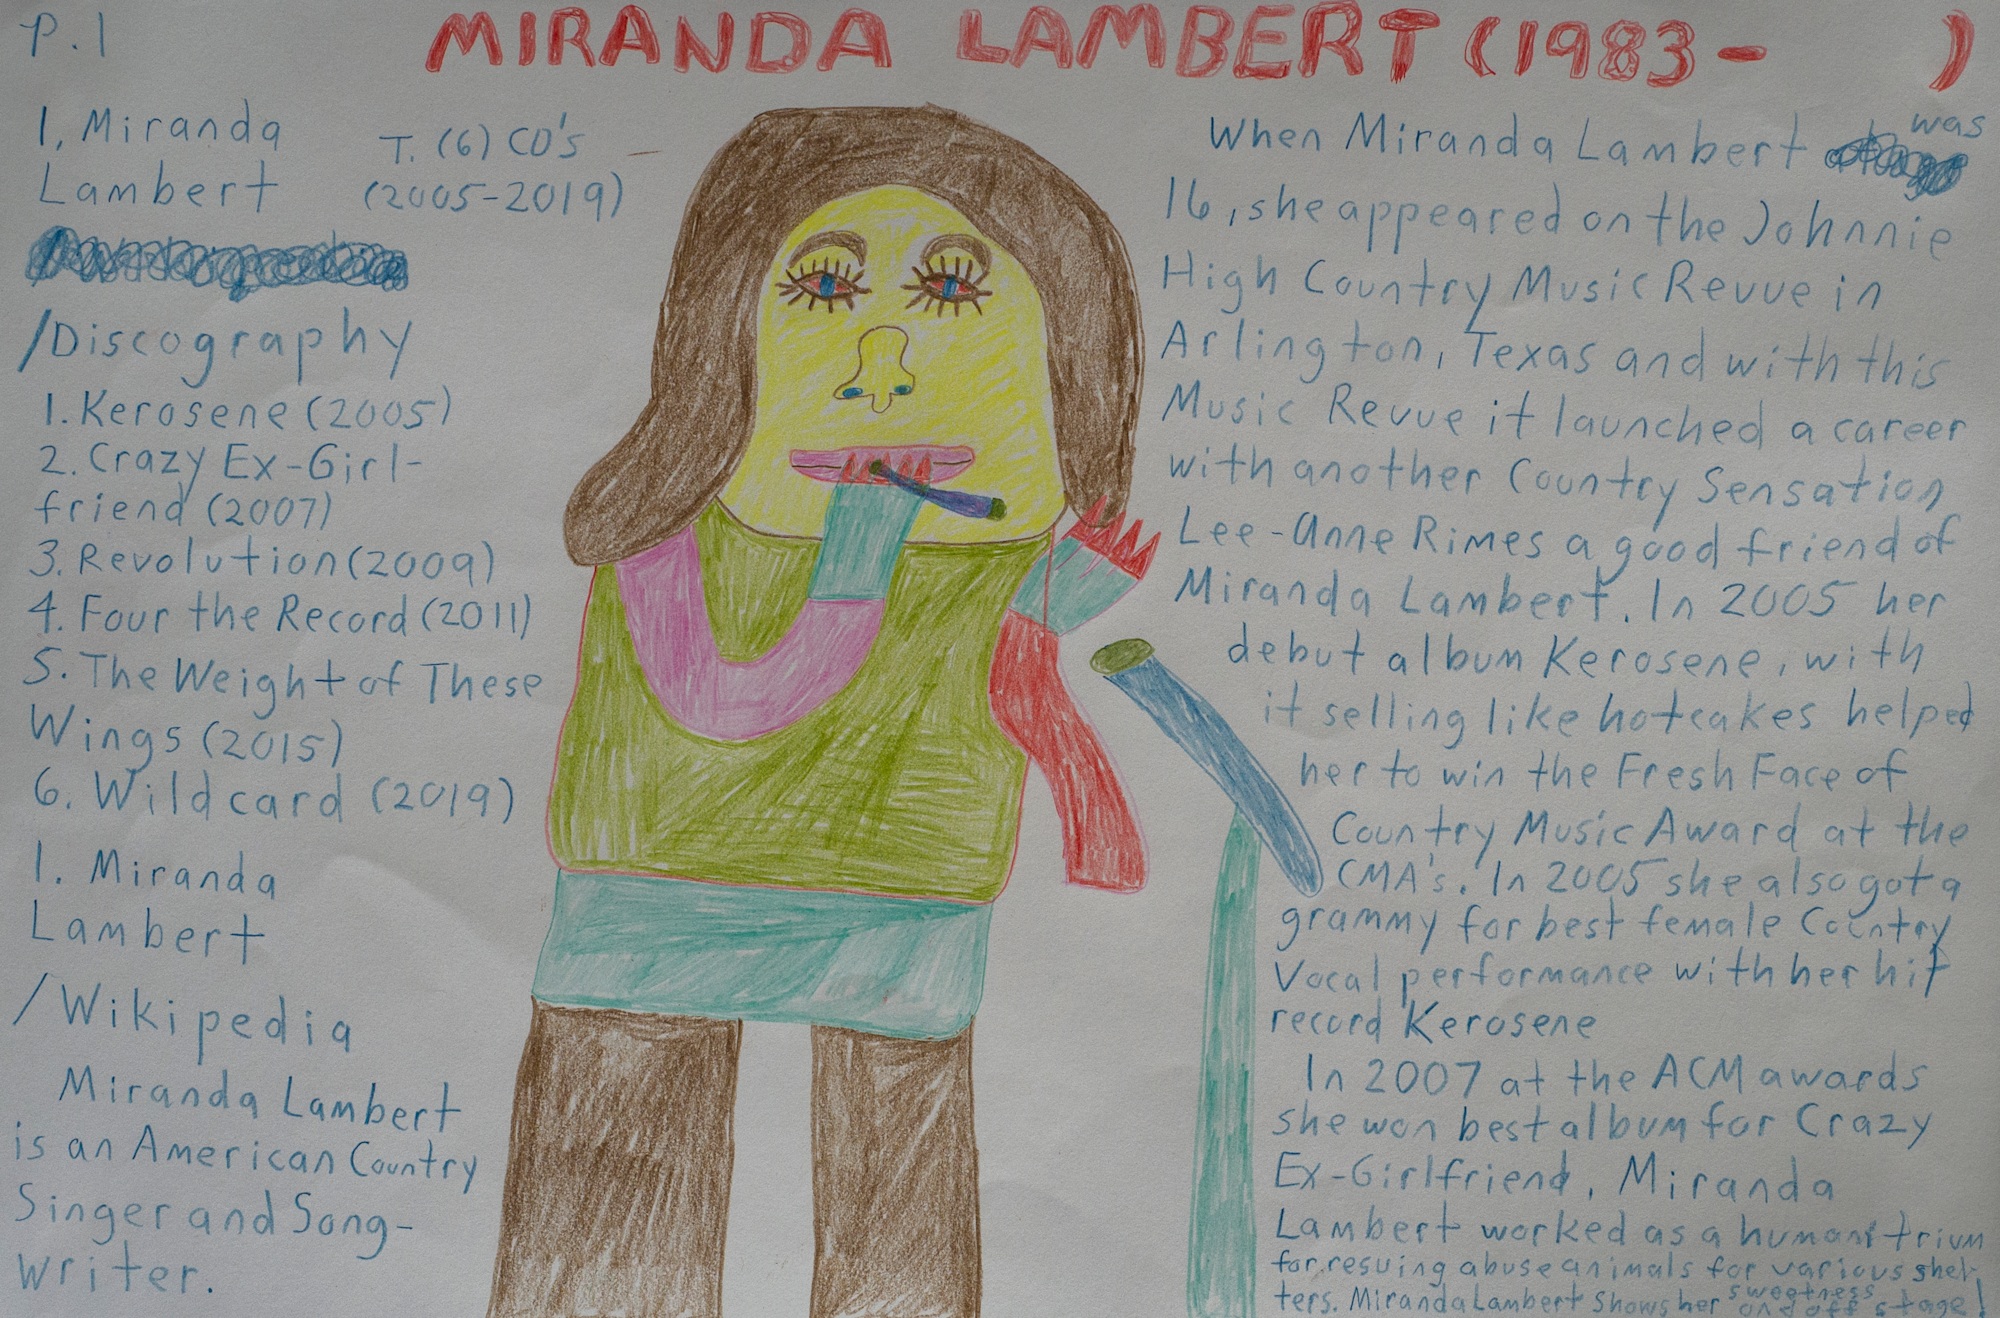 P.1
MIRANDA LAMBERT (1983- )
1, Miranda
Lambert
T. (6) CD's
(2005-2019)
/Discography
1. Kerosene (2005)
2. Crazy Ex-Girl-
friend (2007)
3. Revolution (2009)
4. Four the Record (2011)
5. The Weight of These
Wings (2015)
6. Wildcard (2019)
1. Miranda
Lambert
/Wikipedia
Miranda Lambert
is an American Country
Singer and Song-
Writer.
When Miranda Lambert was
16, she appeared on the Johnnie
High Country Music Revue in
Arlington, Texas and with this
Music Revue it launched a career
with another Country Sensation
Lee-Anne Rimes a good friend of
Miranda Lambert. In 2005 her
debut album Kerosene, with
it selling like hotcakes helped
her to win the Fresh Face of
Country Music Award at the
CMA's. In 2005 she also got a
grammy for best female Country
Vocal performance with her hit
record Kerosene
In 2007 at the ACM awards
she won best album for Crazy
Ex-Girlfriend, Miranda
Lambert worked as a humanitrium
for resuing abuse animals for various shel-
ters. Miranda Lambert Shows her sweetness
on and off stage!